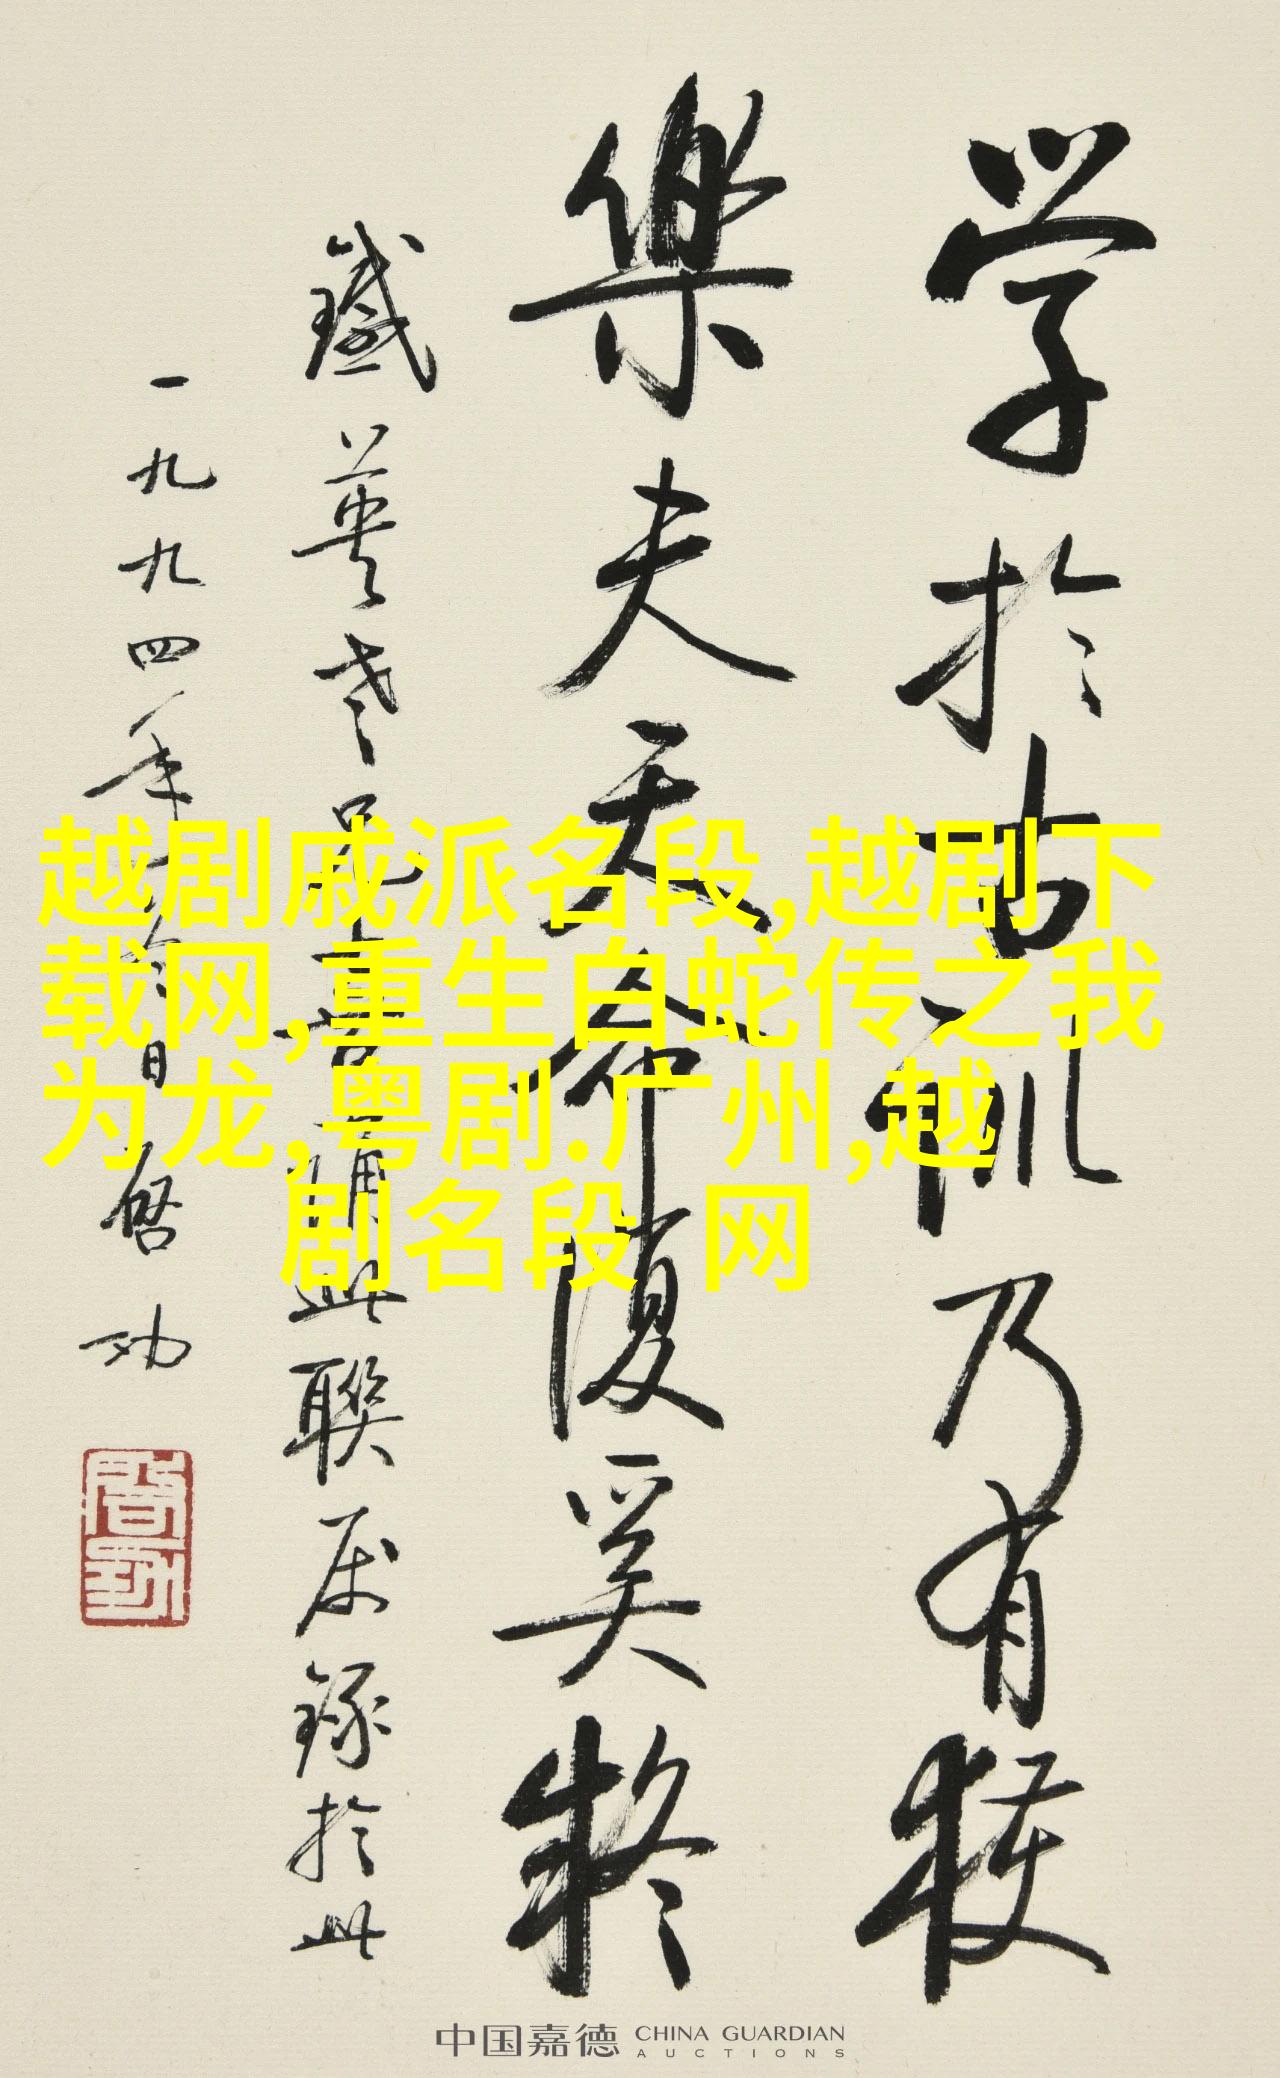 学於古訓乃有獲
樂夫天命復奚疑
鐵英老兄喜誦此聯屬録於此
一九九四年 日 启功
越剧戚派名段,越剧下
载网,重生白蛇传之我
为龙,粤剧.广州,越
剧名段 网
中国嘉德 CHINA GUARDIAN
AUCTIONS